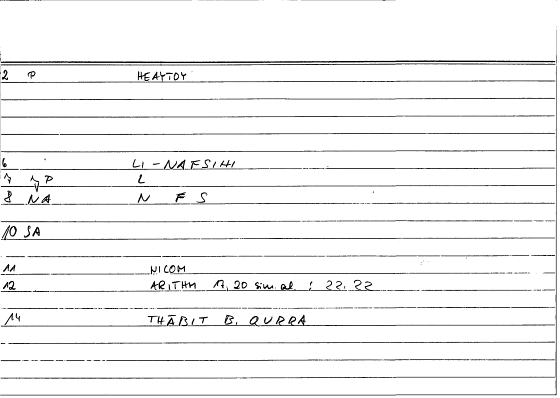 2 P HEAYTOY
6 LI - NAFSIHI
7 P L
8 NA N F S
10 SA
11 NICOM
12 ARITHM 17, 20 sim. al. : 22. 22
14 THĀBIT B. QURRA